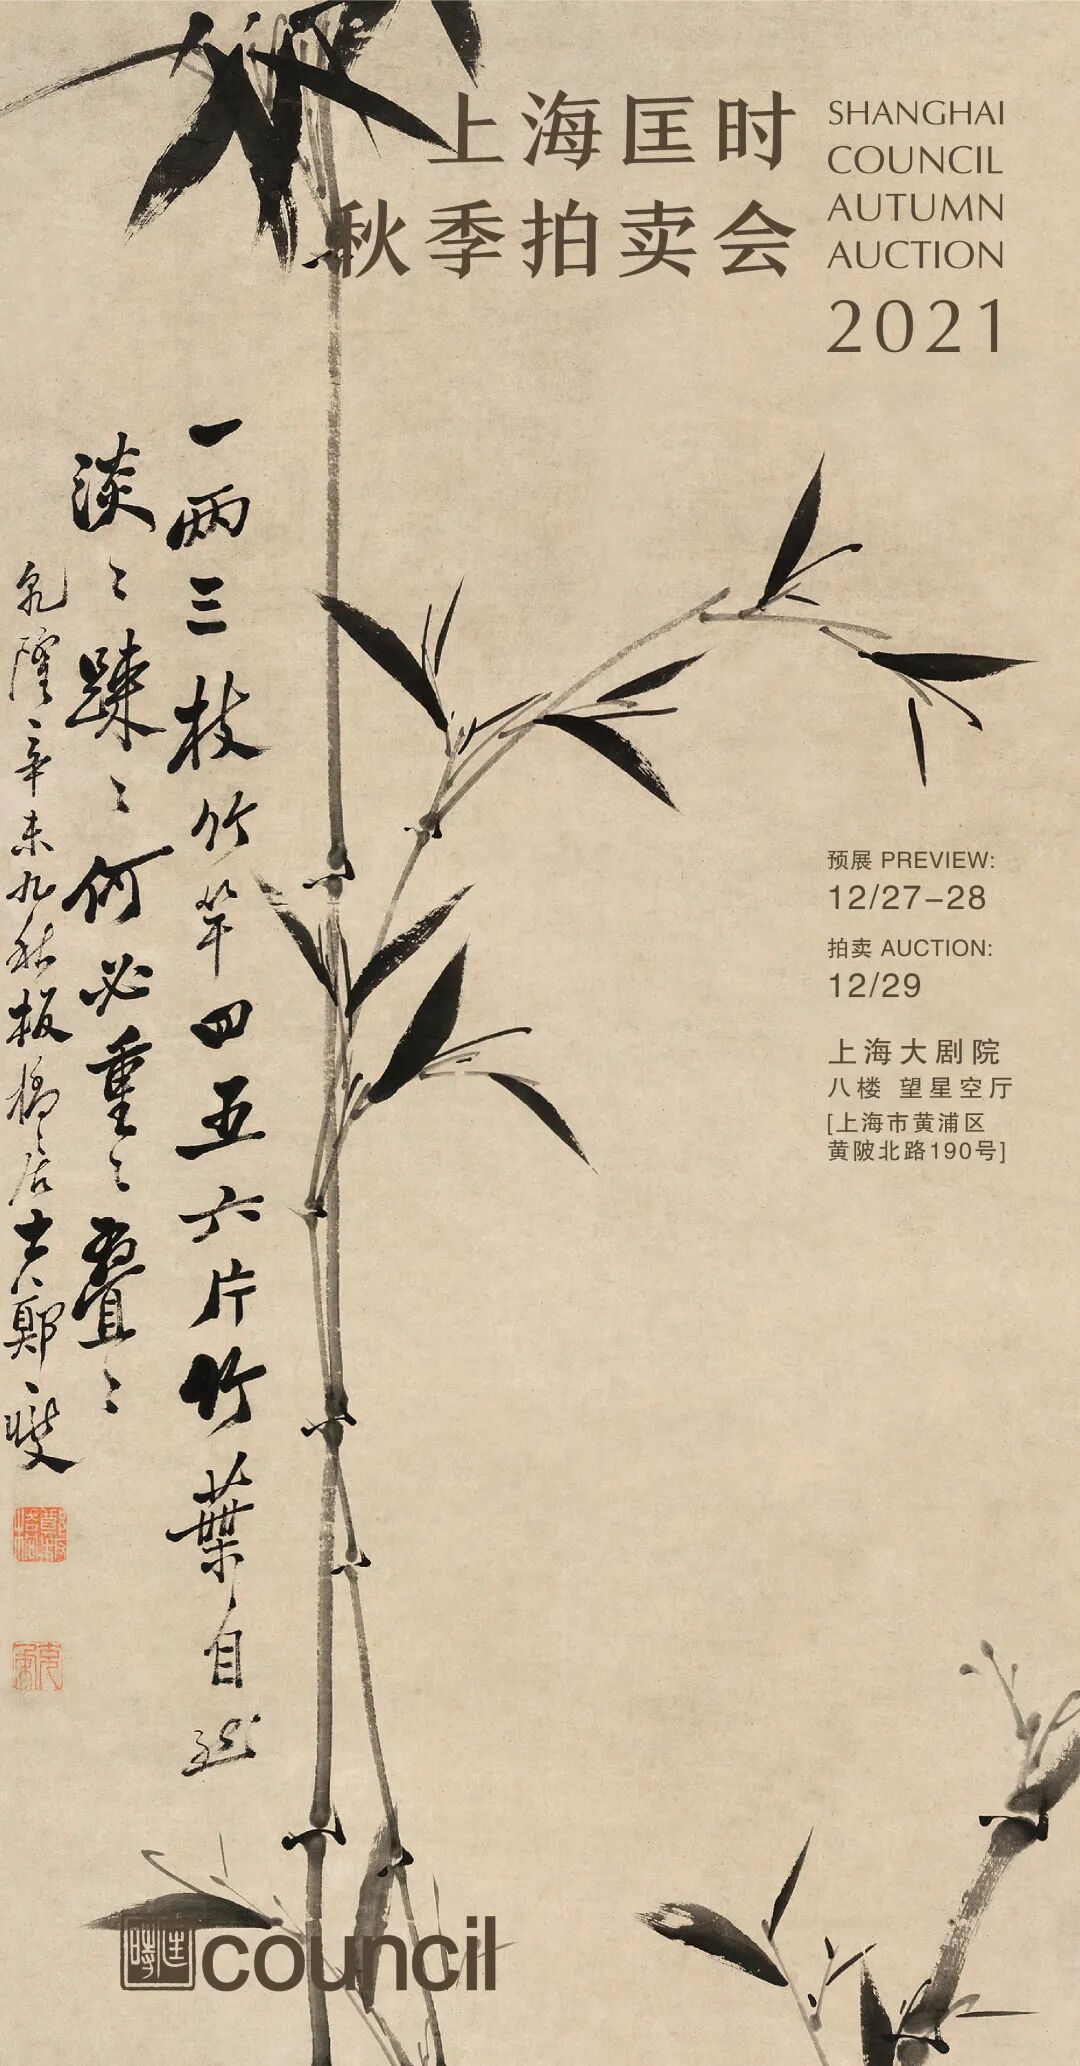 上海匡时
秋季拍卖会
SHANGHAI
COUNCIL
AUTUMN
AUCTION
2021
一两三枝竹竿四五六片竹葉自然
淡〻踈〻何必重〻叠〻
乹隆辛未九秋板橋居士鄭燮
预展 PREVIEW:
12/27-28
拍卖 AUCTION:
12/29
上海大剧院
八楼 望星空厅
[上海市黄浦区
黄陂北路190号]
council